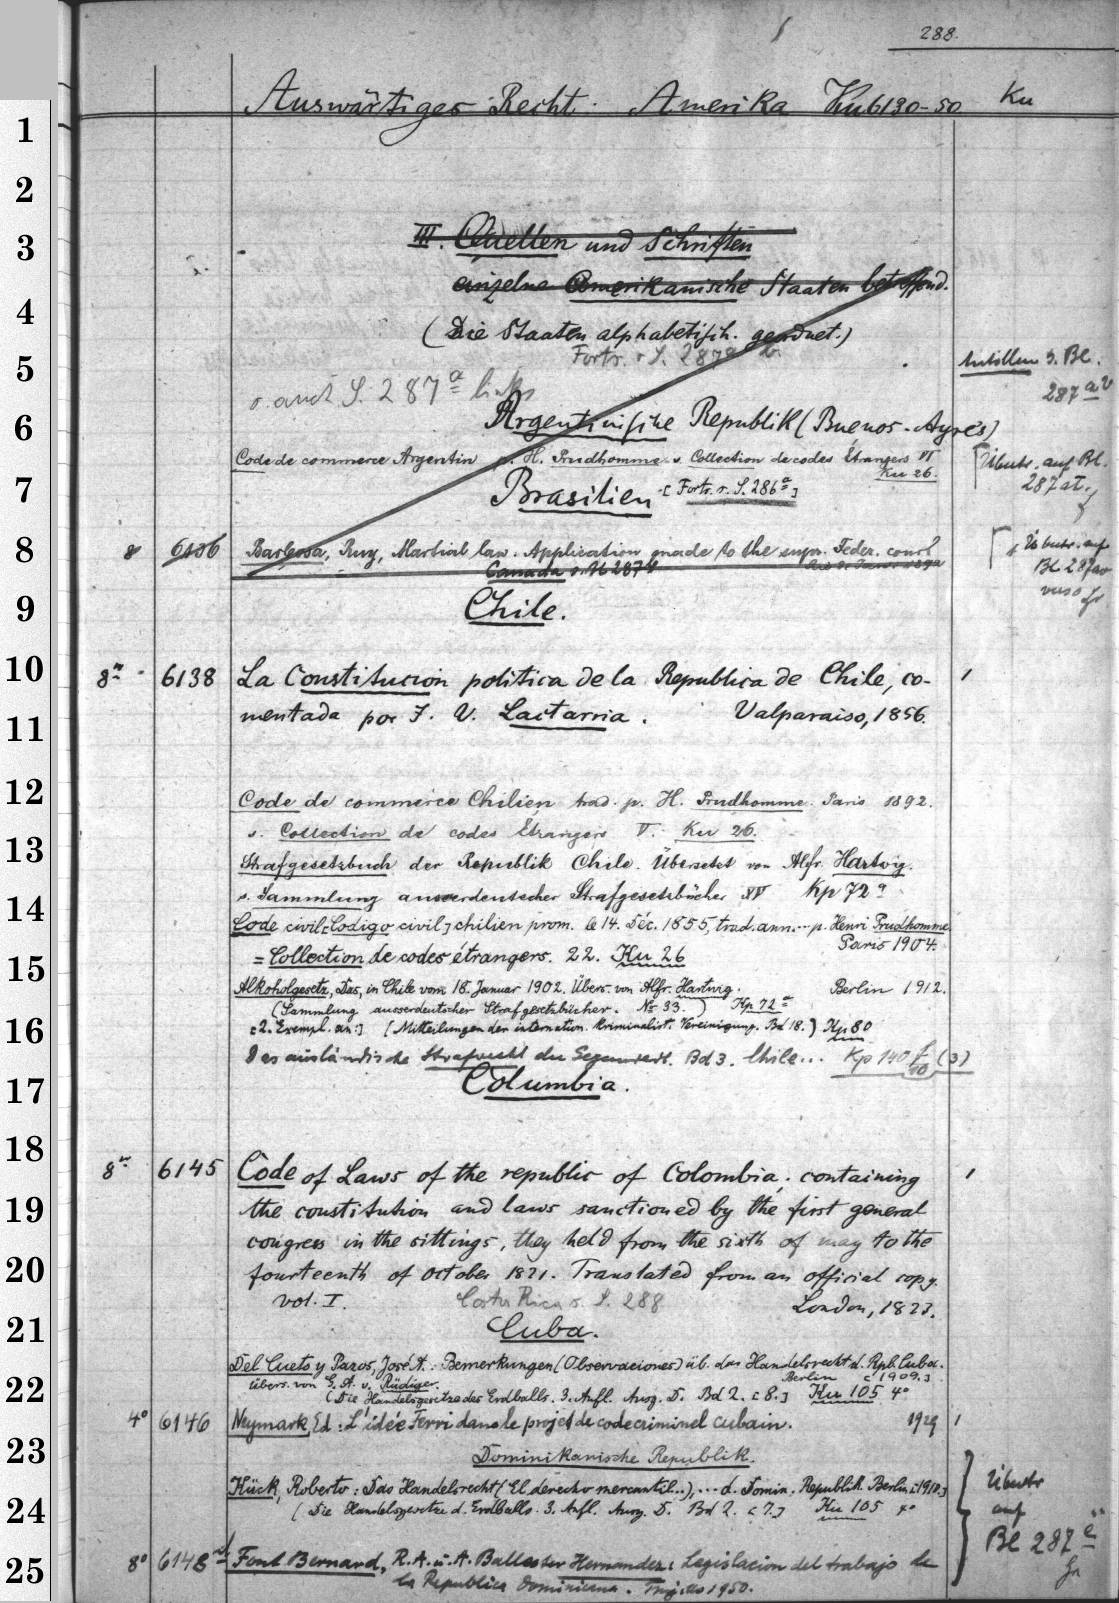 288.
Auswärtiges Recht. Amerika Ku 6130-50 Ku
1
2
3 III. Quellen und Schriften
einzelne Amerikanische Staaten betreffend.
4 (Die Staaten alphabetisch geordnet.)
Forts. S. 287ª
5 Antillen s. Bl.
287 a v
s. auch S. 287 a links
6 Argentinische Republik (Buenos-Ayres)
Code de commerce Argentin p. H. Prudhomme s. Collection de codes Étrangers VI Übertr. auf Bl.
Ku 26.
7 Brasilien [Forts. s. S. 286ª]
8 8 6136 Barbosa, Ruy, Martial law. Application made to the supr. Feder. court Übertr. auf
Canada
9 Chile.
10 8º 6138 La Constitucion politica de la Republica de Chile, co-
11 mentada por J. V. Lastarria. Valparaiso, 1856.
12 Code de commerce Chilien trad. p. H. Prudhomme. Paris 1892.
s. Collection de codes Étrangers V. Ku 26.
13 Strafgesetzbuch der Republik Chile. Übersetzt von Alfr. Hartwig.
14 s. Sammlung ausserdeutscher Strafgesetzbücher XV Kp 72 a
Code civil [Codigo civil] chilien prom. le 14. Déc. 1855, trad. ann... p. Henri Prudhomme
Paris 1904.
15 = Collection de codes étrangers. 22. Ku 26
Alkoholgesetz, Das, in Chile vom 18. Januar 1902. Übers. von Alfr. Hartwig. Berlin 1912.
(Sammlung ausserdeutscher Strafgesetzbücher. No 33.) Kp 72 a
16 [2. Exempl. an:] (Mitteilungen der internation. Kriminalist. Vereinigung. Bd 18.) Kp 80
Das ausländische Strafrecht der Gegenwart. Bd 3. Chile... Kp 140 (3)
17 Columbia.
18 8º 6145 Code of Laws of the republic of Colombia, containing
19 the constitution and laws sanctioned by the first general
congress in the sittings, they held from the sixth of may to the
20 fourteenth of October 1821. Translated from an official copy.
vol. I. Costa Rica s. S. 288 London, 1823.
21 Cuba.
Del Cueto y Pazos, José A.: Bemerkungen (Observaciones) üb. das Handelsrecht d. Rpb. Cuba.
übers. von E. A. v. Rüdiger. Berlin [1909.]
22 (Die Handelsgesetze des Erdballs. 3. Aufl. Ausg. D. Bd 2. [8.] Ku 105 4º
4º 6146 Neymark, Ed: L'idée Ferri dans le projet de code criminel cubain. 1929
23 Dominikanische Republik.
Kück, Roberto: Das Handelsrecht (El derecho mercantil...), ... d. Domin. Republik. Berlin [1910.] Übertr
24 (Die Handelsgesetze d. Erdballs. 3. Aufl. Ausg. D. Bd 2. [7.] Ku 105 4º auf
Bl 287 e
25 8º 6148 Font Bernard, R. A. u. A. Ballester Hernandez: Legislacion del trabajo de
la Republica Dominicana. Trujillo 1950.